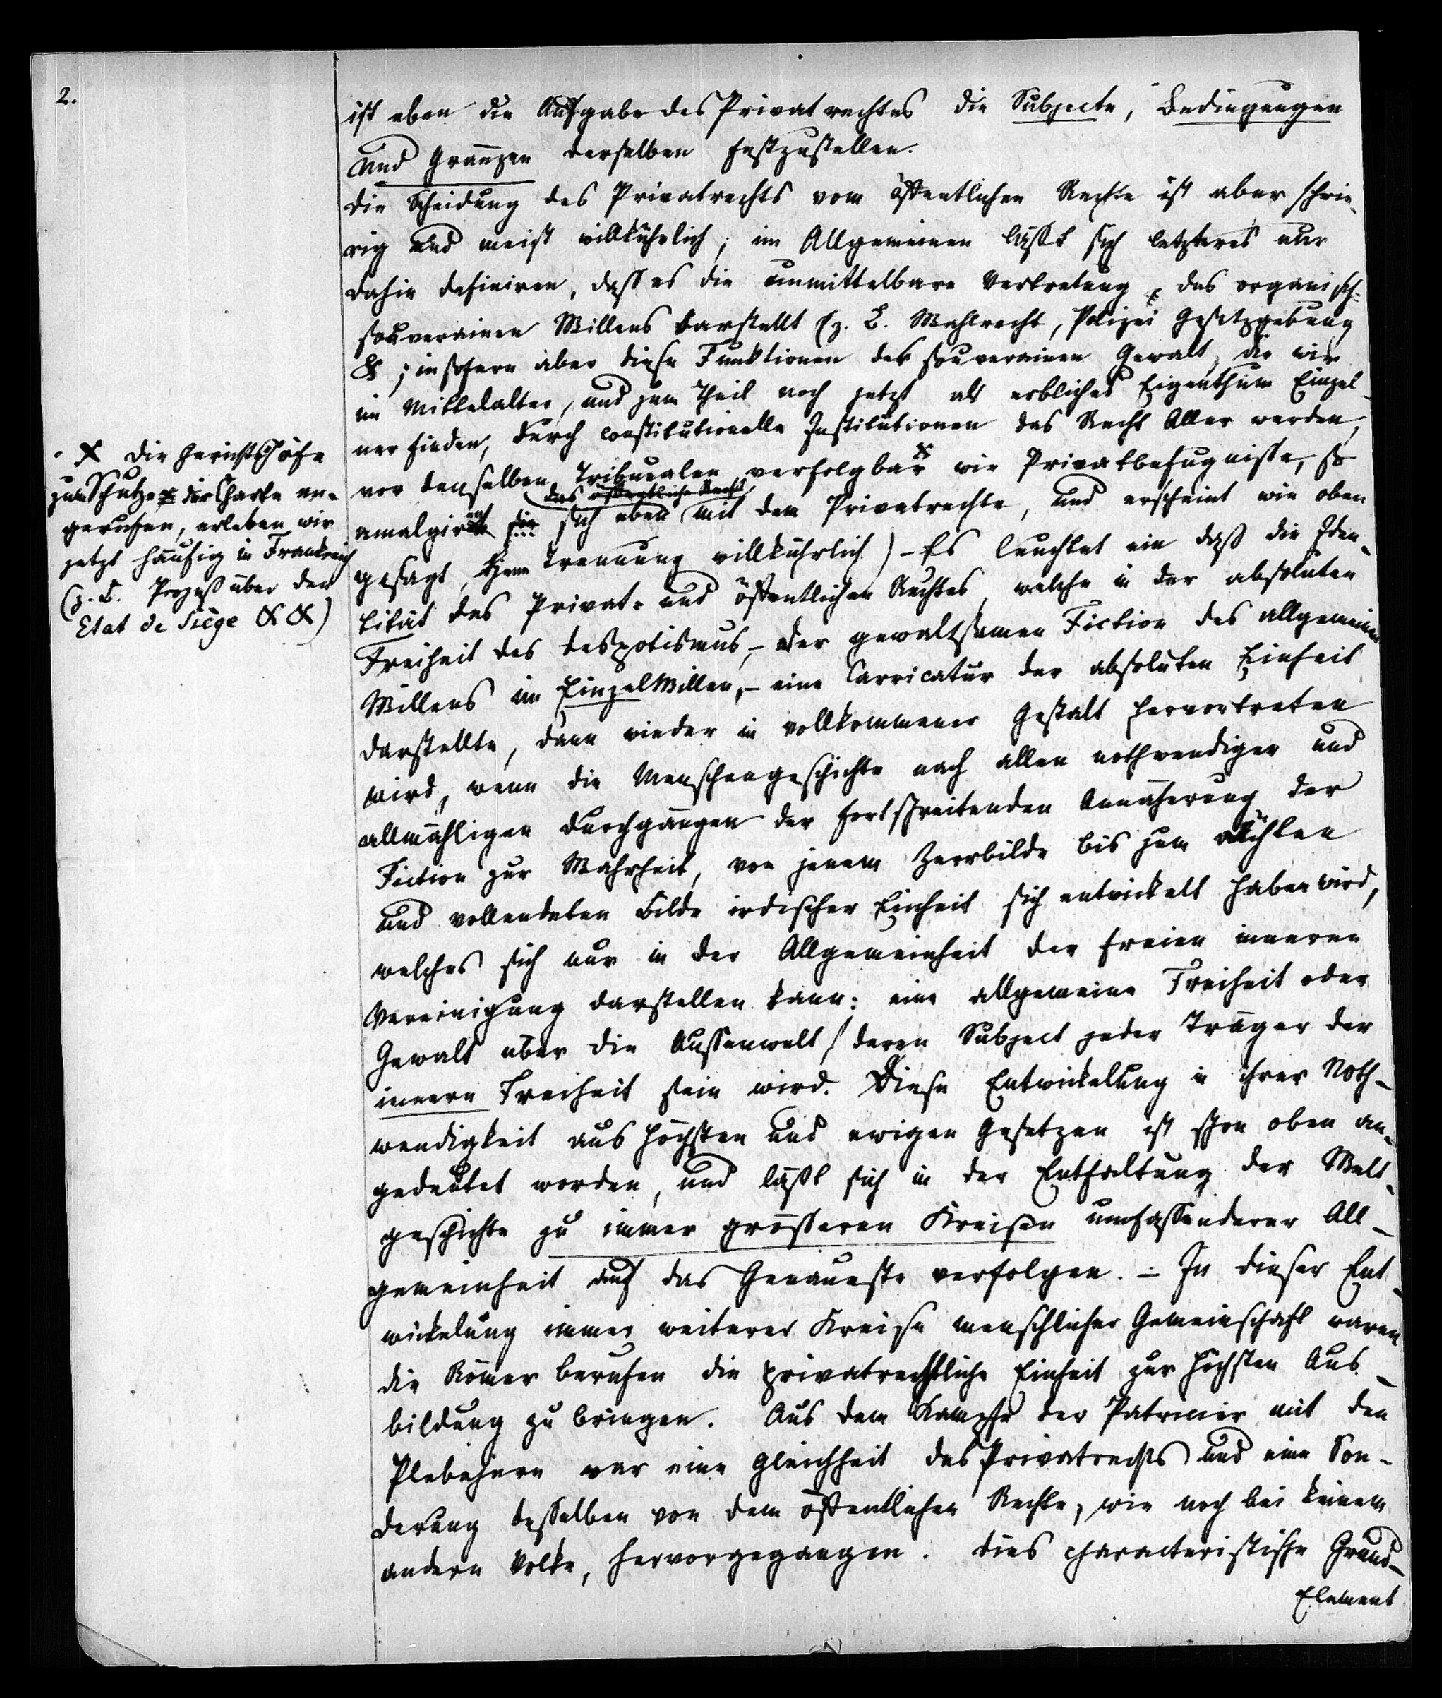 2.
ist eben die Aufgabe des Privatrechtes die Subjecte, Bedingungen
und Gränzen derselben festzustellen.
Die Scheidung des Privatrechts vom öffentlichen Rechte ist aber schwie-
rig und meist willkührlich; im Allgemeinen läßt sich letzteres nur
dahin definiren, daß es die unmittelbare Vertretung des organisch-
souverainen Willens darstellt (z. B. Wahlrecht, Polizei Gesetzgebung
&; insofern aber diese Funktionen der souverainen Gewalt, die wir
im Mittelalter, und zum Theil noch jetzt als erbliches Eigenthum Einzel-
ner finden, durch constitutionelle Institutionen das Recht Aller werden,
vor denselben Tribunalen verfolgbar x wie Privatbefugnisse, so
das öffentliche Recht
amalgirt sich eben mit dem Privatrechte, und erscheint wie oben
gesagt, Trennung willkührlich) - Es leuchtet ein daß die Iden-
tität des Privat- und öffentlichen Rechtes, welche in der absoluten
Freiheit des Despotismus, - der gewaltsamen Fiction des allgemeinen
Willens im Einzelwillen, - eine Carricatur der absoluten Einheit
darstellte, dann wieder in vollkommener Gestalt hervortreten
wird, wenn die Menschengeschichte nach allen nothwendigen und
allmähligen Durchgängen der fortschreitenden Annäherung der
Fiction zur Wahrheit, von jenem Zerrbilde bis zum ächten
und vollendeten Bilde irdischer Einheit sich entwickelt haben wird,
welches sich nur in der Allgemeinheit der freien inneren
Vereinigung darstellen kann: eine allgemeine Freiheit oder
Gewalt über die Aussenwelt / deren Subject jeder Träger der
innern Freiheit sein wird. Diese Entwickelung in ihrer Noth-
wendigkeit aus höchsten und ewigen Gesetzen ist schon oben an-
gedeutet worden, und läßt sich in der Entfaltung der Welt-
geschichte zu immer grösseren Kreisen umfassenderer All-
gemeinheit auf das Genaueste verfolgen. - In dieser Ent-
wickelung immer weiterer Kreise menschlicher Gemeinschaft waren
die Römer berufen die privatrechtliche Einheit zur höchsten Aus-
bildung zu bringen. Aus dem Kampfe der Patricier mit den
Plebejern war eine Gleichheit des Privatrechts und eine Son-
derung desselben von dem öffentlichen Rechte, wie noch bei keinem
andern Volke, hervorgegangen. Dies characteristische Grund-
Element
x die Gerichtshöfe
zum Schutze der Charte an-
gerufen, erleben wir
jetzt häufig in Frankreich
(z. B. Prozeß über den
Etat de Siège & &)